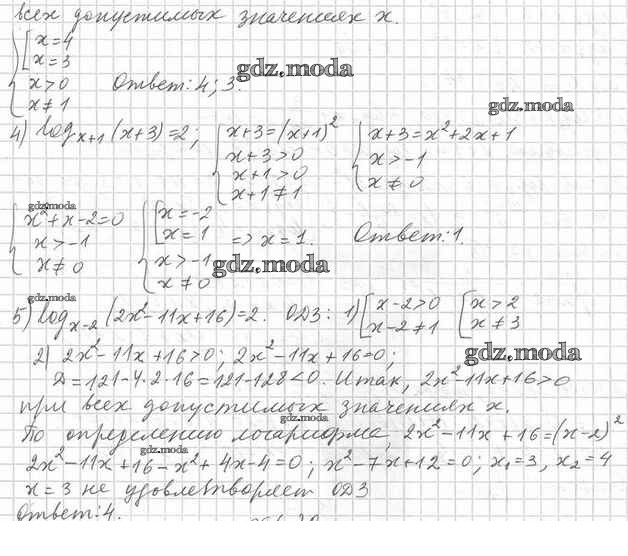 всех допустимых значениях x.
[x=4
x=3
x>0 Ответ: 4; 3.
x≠1
gdz.moda
gdz.moda
4) log_{x+1}(x+3)=2; {x+3=(x+1)^2 {x+3=x^2+2x+1
x+3>0 x>-1
x+1>0 x≠0
x+1≠1
gdz.moda
{x^2+x-2=0 {[x=-2
x>-1 x=1 => x=1. Ответ: 1.
x≠0 x>-1
x≠0
gdz.moda
gdz.moda
5) log_{x-2}(2x^2-11x+16)=2. ОДЗ: 1) [x-2>0 [x>2
x-2≠1 x≠3
gdz.moda
2) 2x^2-11x+16>0; 2x^2-11x+16=0;
Д=121-4·2·16=121-128<0. Итак, 2x^2-11x+16>0
при всех допустимых значениях x.
gdz.moda
По определению логарифма, 2x^2-11x+16=(x-2)^2
gdz.moda
2x^2-11x+16-x^2+4x-4=0; x^2-7x+12=0; x₁=3, x₂=4
x=3 не удовлетворяет ОДЗ
Ответ: 4.